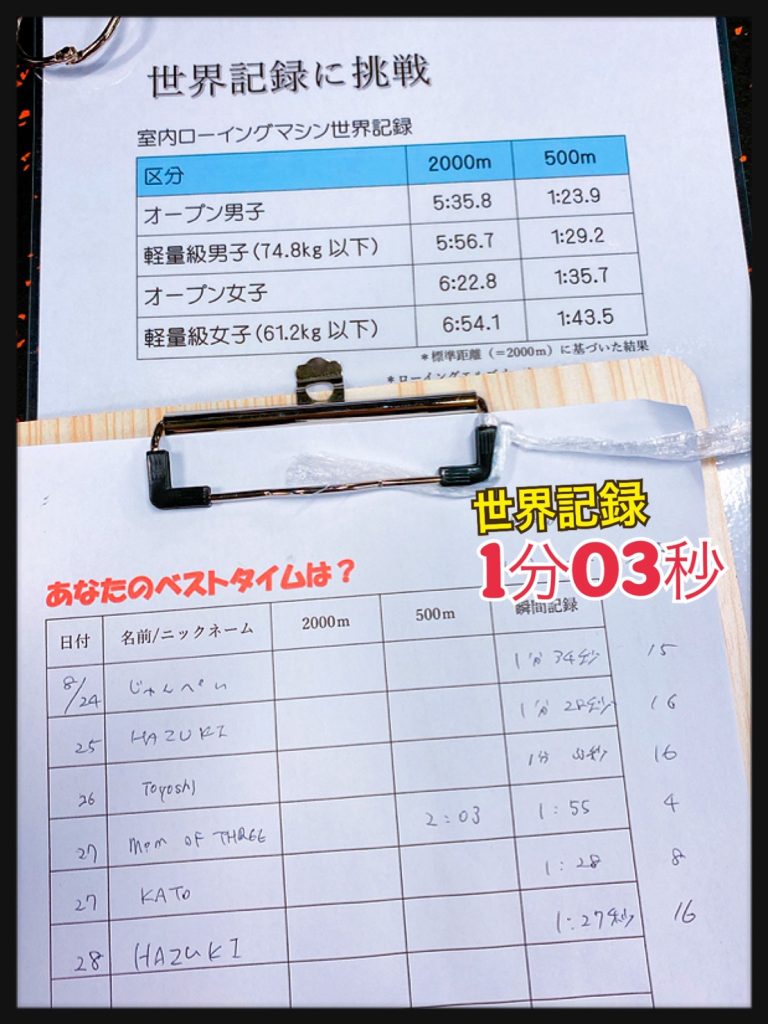 世界記録に挑戦
室内ローイングマシン世界記録
区分 2000m 500m
オープン男子 5:35.8 1:23.9
軽量級男子(74.8kg以下) 5:56.7 1:29.2
オープン女子 6:22.8 1:35.7
軽量級女子(61.2kg以下) 6:54.1 1:43.5
*標準距離(=2000m)に基づいた結果
世界記録
1分03秒
あなたのベストタイムは?
日付 名前/ニックネーム 2000m 500m 瞬間記録
8/24 じゃんぺい 1分34秒 15
25 HAZUKI 1分 16
26 Toyoshi 1分 秒 16
27 Mom OF THREE 2:03 1:55 4
27 KATO 1:28 8
28 HAZUKI 1:27秒 16